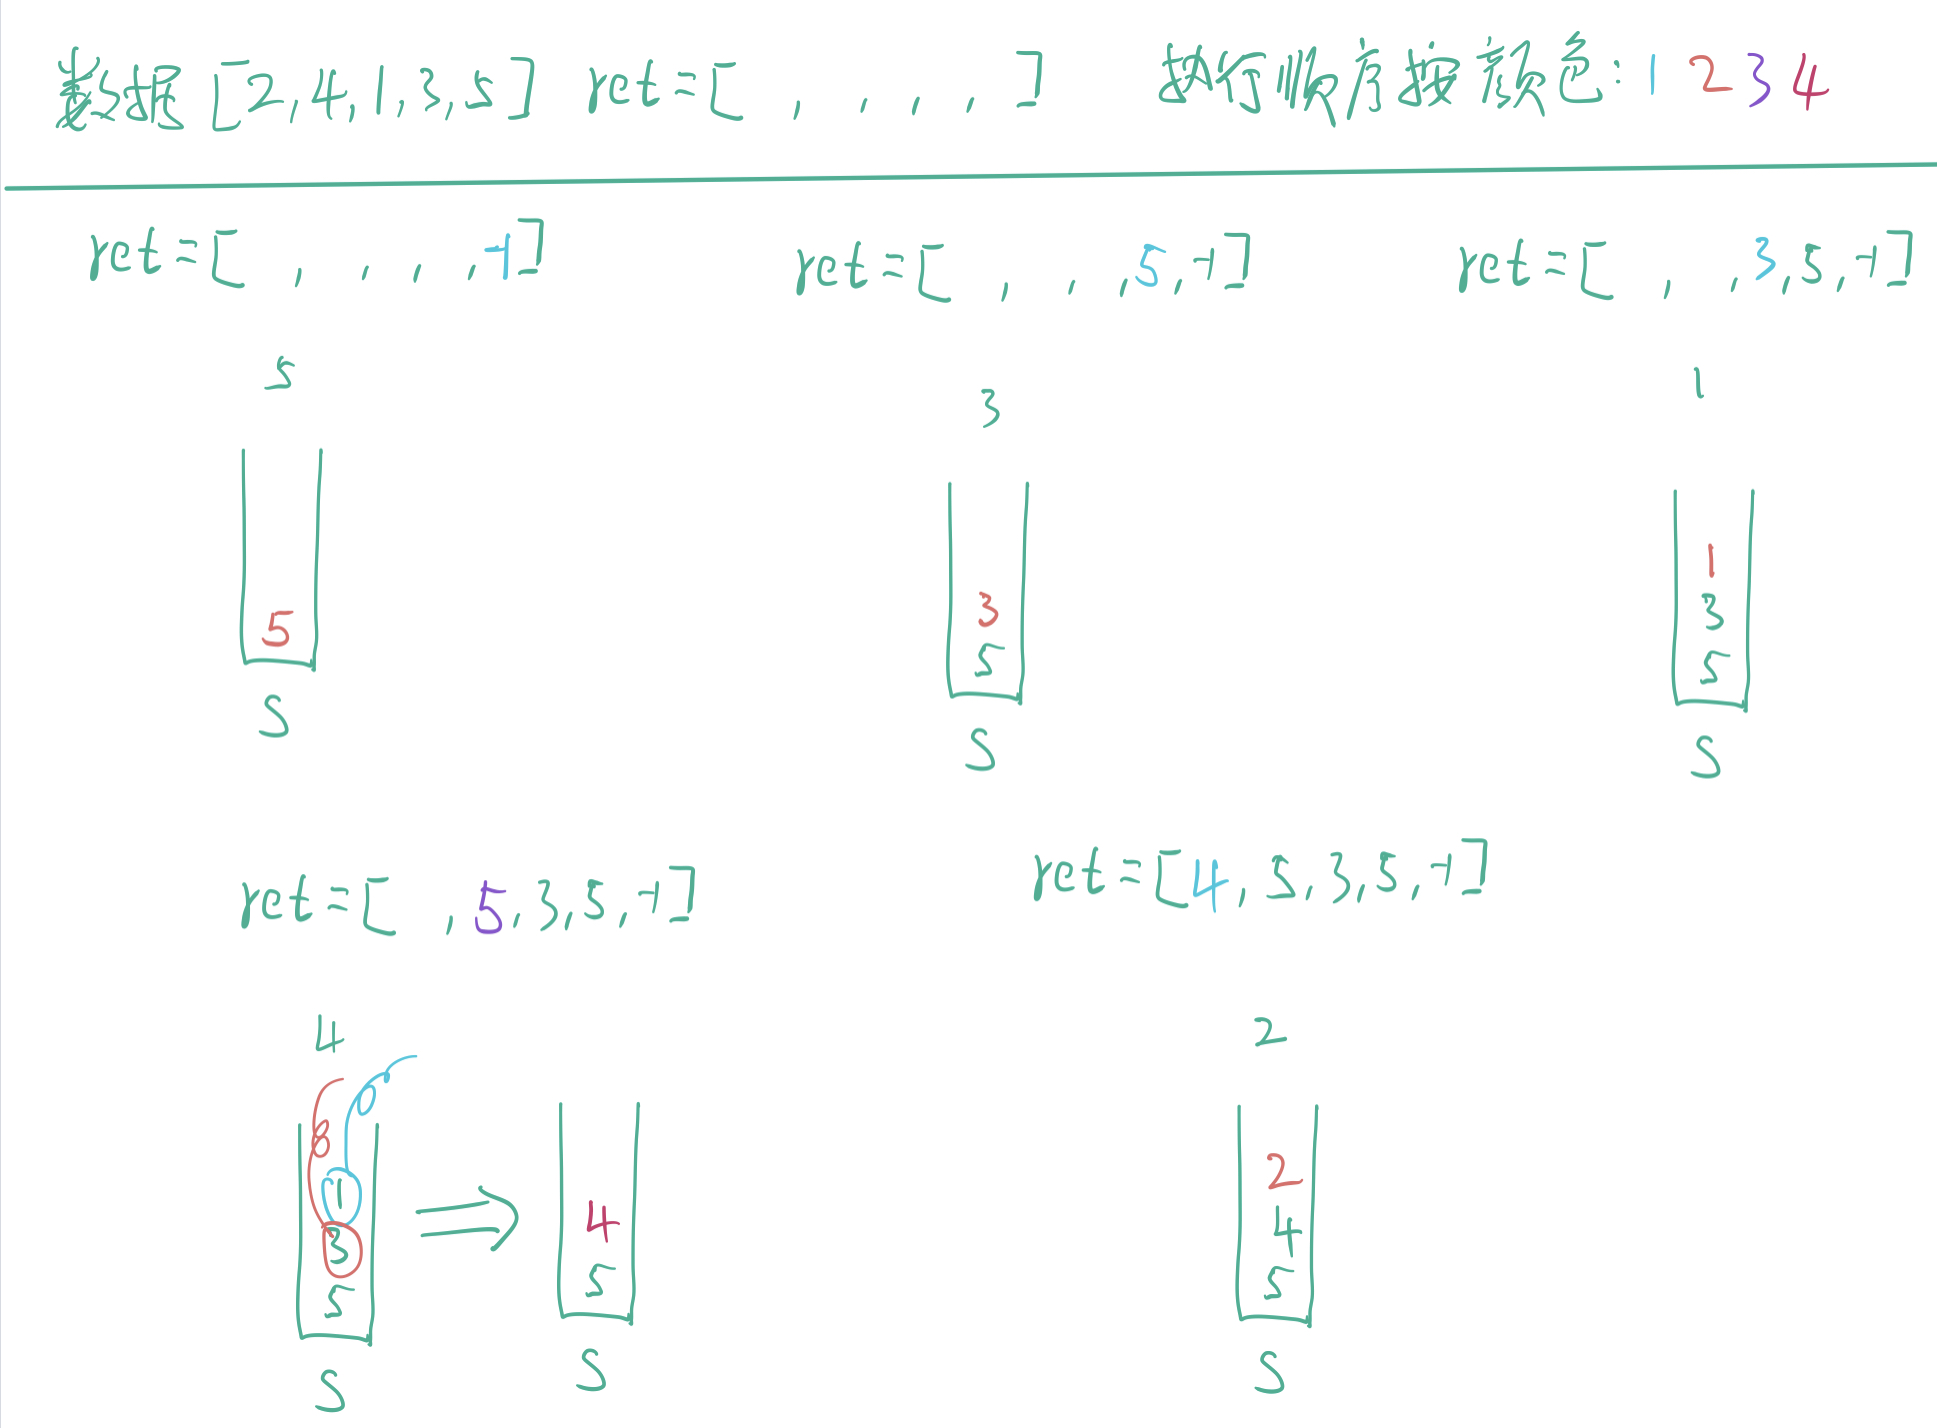 数据[2,4,1,3,5] ret=[ , , , , ] 执行顺序按颜色:1 2 3 4
ret=[ , , , ,-1]
5
5
S
ret=[ , , ,5,-1]
3
3
5
S
ret=[ , ,3,5,-1]
1
1
3
5
S
ret=[ ,5,3,5,-1]
4
1
3
5
S
4
5
S
ret=[4,5,3,5,-1]
2
2
4
5
S